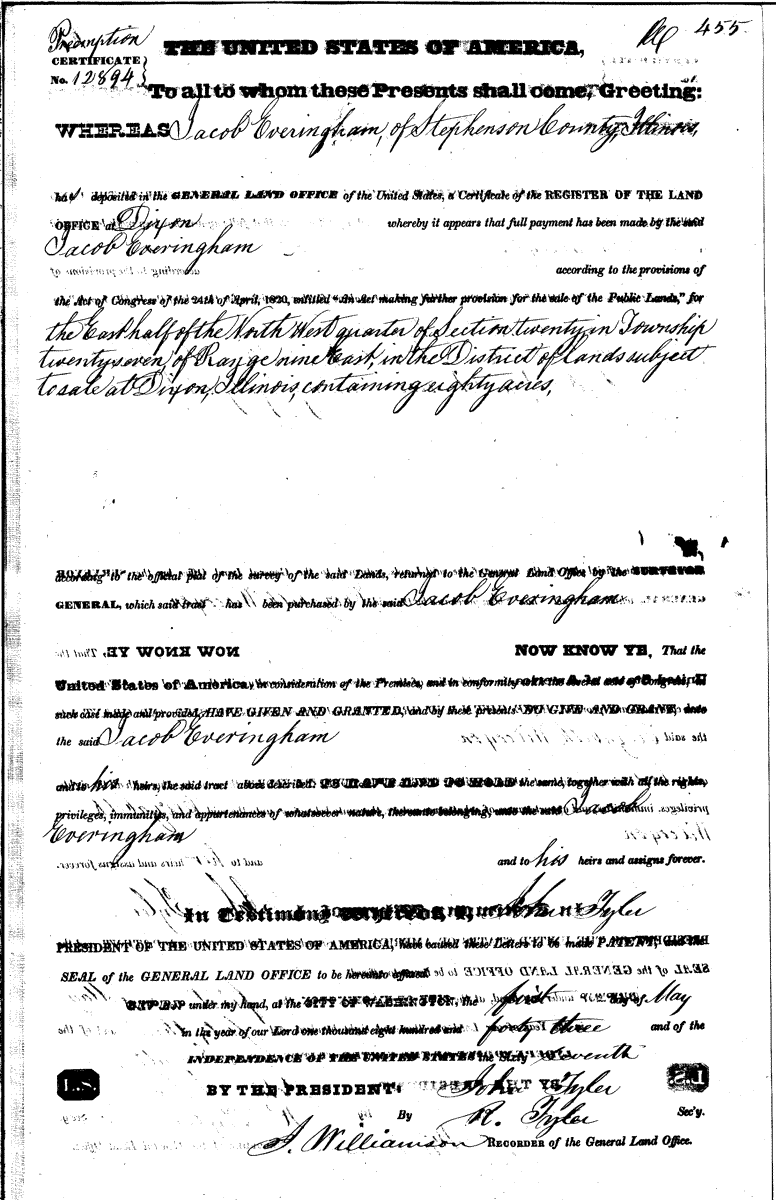 Preemption
CERTIFICATE
No. 12894
455
THE UNITED STATES OF AMERICA,
To all to whom these Presents shall come, Greeting:
WHEREAS Jacob Everingham, of Stephenson County, Illinois,
ha deposited in the GENERAL LAND OFFICE of the United States, a Certificate of the REGISTER OF THE LAND
OFFICE at Dixon whereby it appears that full payment has been made by the said
Jacob Everingham
according to the provisions of
the Act of Congress of the 24th of April, 1820, entitled "An Act making further provision for the sale of the Public Lands," for
the East half of the North West quarter of Section twenty in Township
twenty seven, of Range nine East, in the District of lands subject
to sale at Dixon, Illinois, containing eighty acres,
according to the official plat of the survey of the said Lands, returned to the General Land Office by the SURVEYOR
GENERAL, which said tract has been purchased by the said Jacob Everingham
NOW KNOW YE, That the
United States of America, in consideration of the Premises, and in conformity with the several acts of Congress, in
such case made and provided, HAVE GIVEN AND GRANTED, and by these presents DO GIVE AND GRANT, unto
the said Jacob Everingham
and to his heirs, the said tract above described: TO HAVE AND TO HOLD the same, together with all the rights,
privileges, immunities, and appurtenances of whatsoever nature, thereunto belonging, unto the said Jacob
Everingham
and to his heirs and assigns forever.
In Testimony Whereof, I, John Tyler
PRESIDENT OF THE UNITED STATES OF AMERICA, have caused these Letters to be made PATENT, and the
SEAL of the GENERAL LAND OFFICE to be hereunto affixed.
GIVEN under my hand, at the CITY OF WASHINGTON, the first day of May
in the year of our Lord one thousand eight hundred and forty three and of the
INDEPENDENCE OF THE UNITED STATES the Sixty seventh
L.S.
BY THE PRESIDENT: John Tyler
By R. Tyler Sec'y.
J. Williamson RECORDER of the General Land Office.